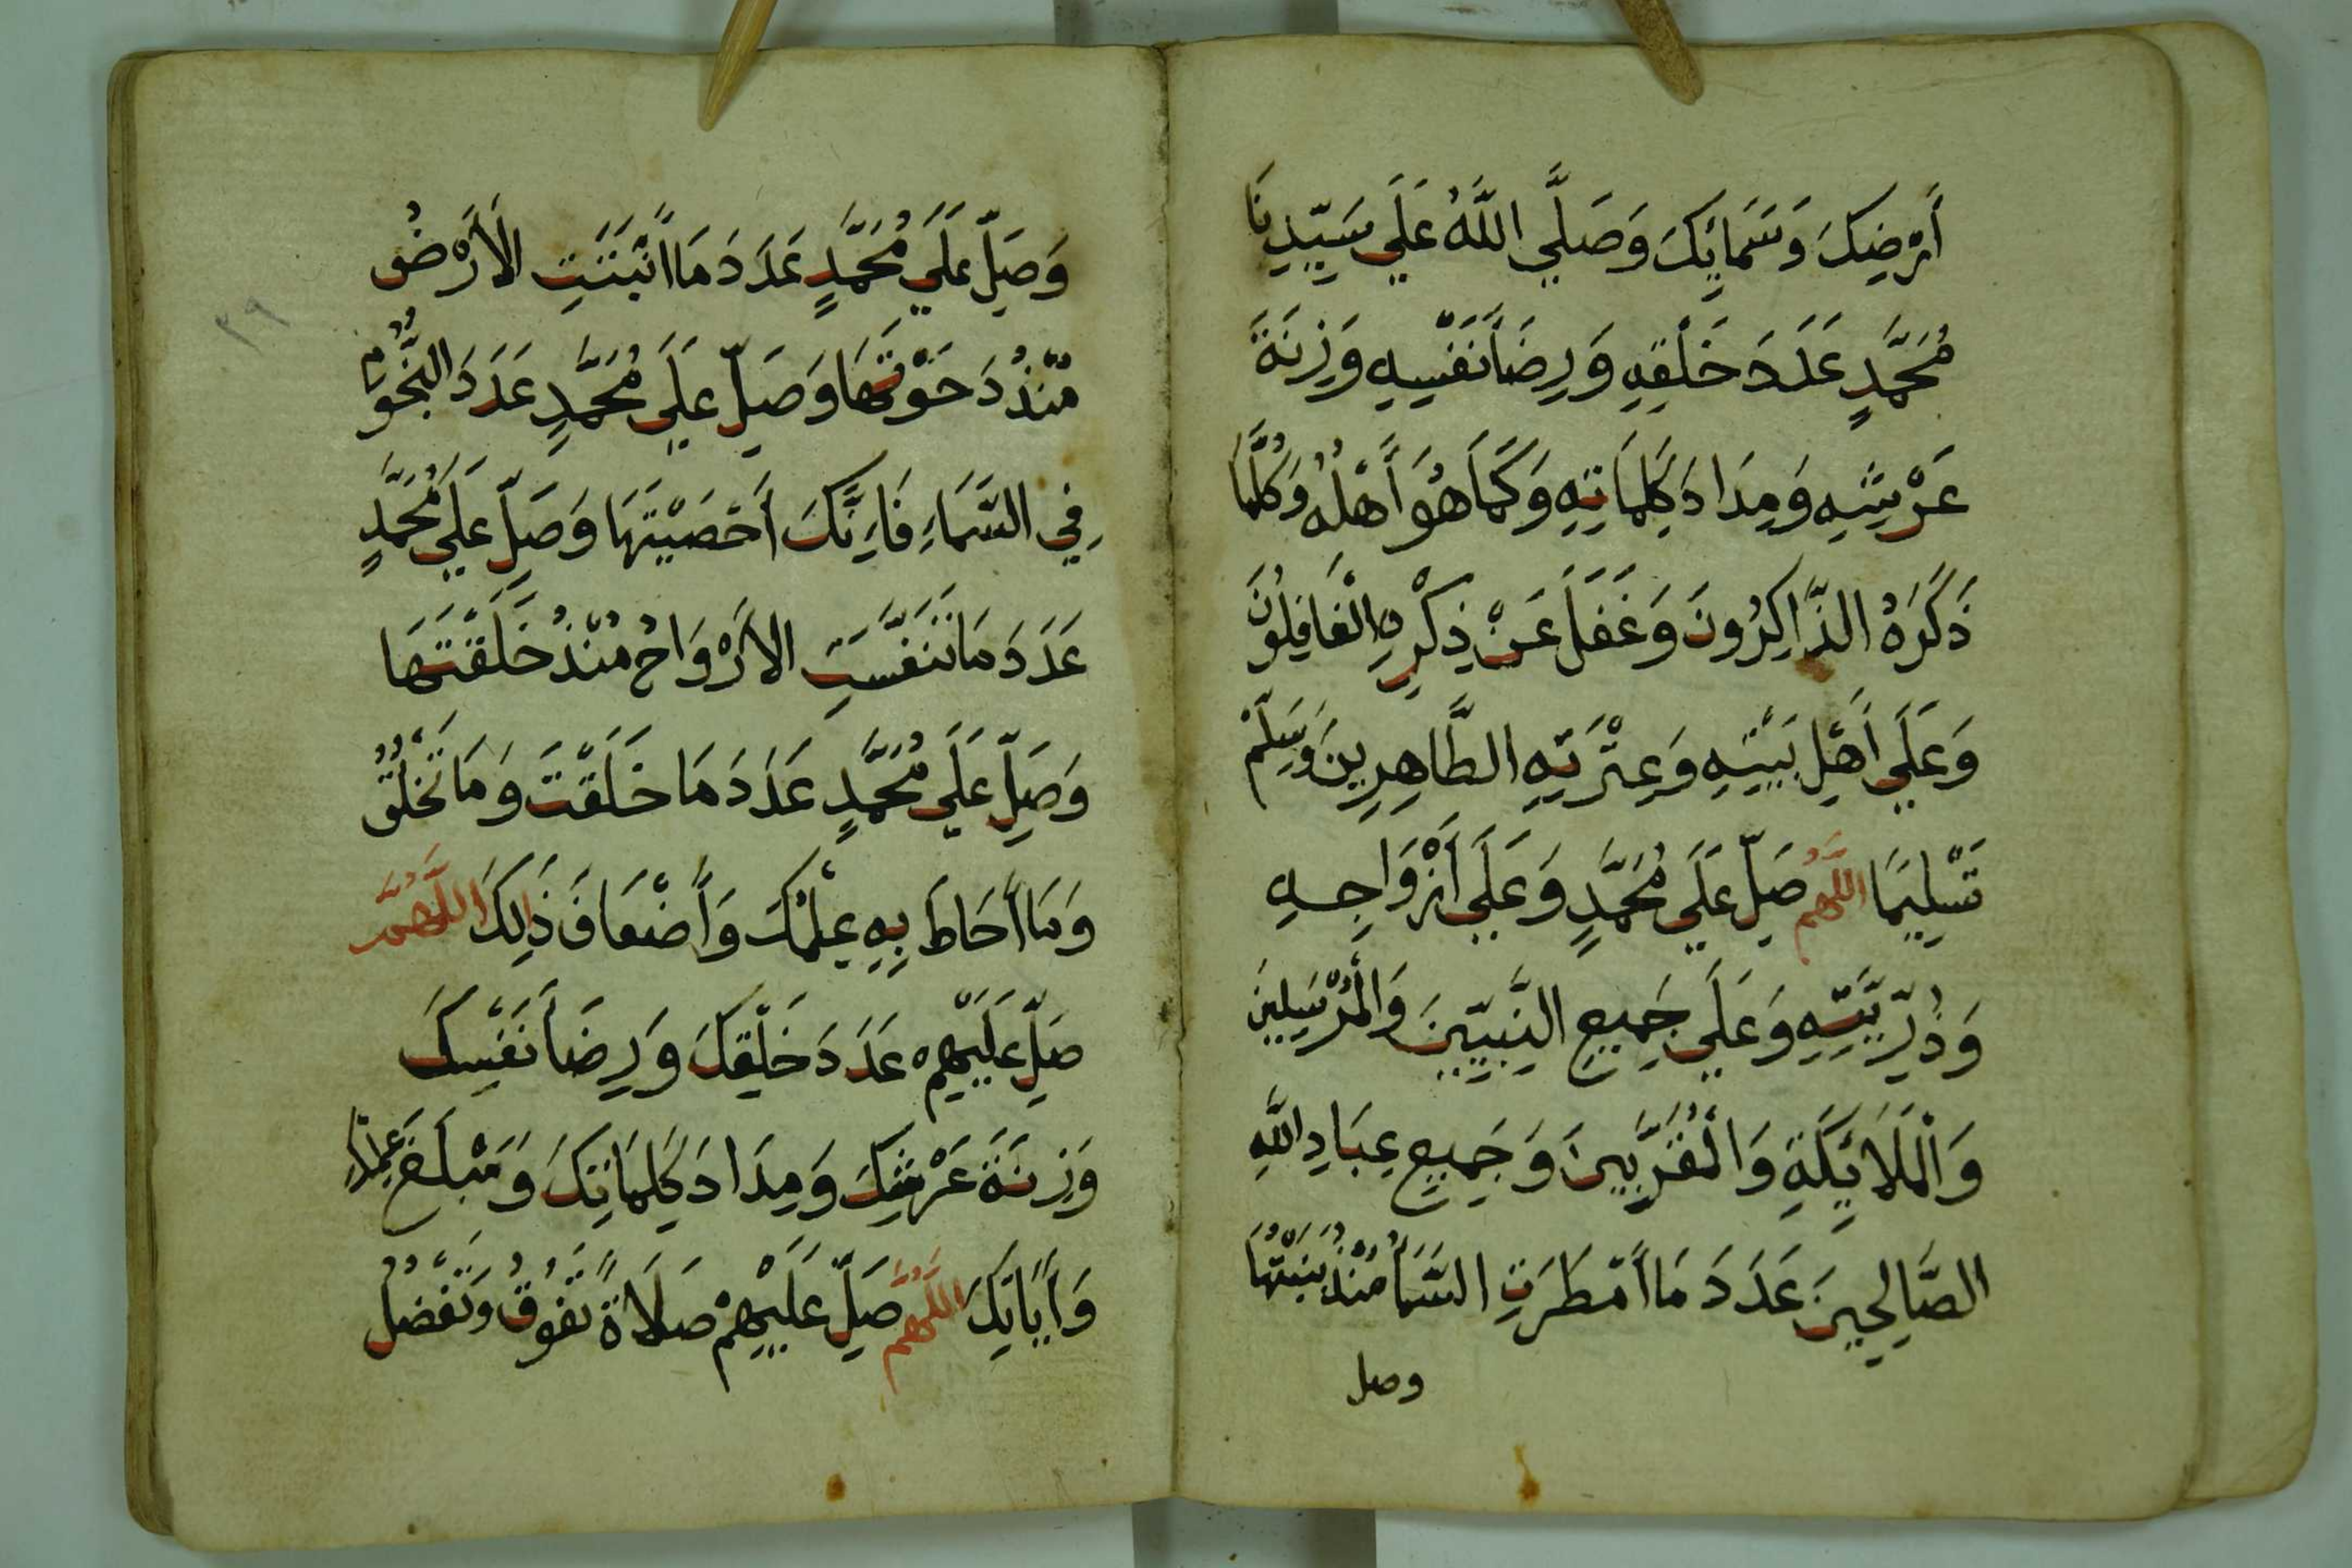 أَرْضِكَ وَسَمَائِكَ وَصَلَّي اللَّهُ عَلَي سَيِّدِنَا
مُحَمَّدٍ عَدَدَ خَلْقِهِ وَرِضَا نَفْسِهِ وَزِنَةَ
عَرْشِهِ وَمِدَادَ كَلِمَاتِهِ وَكَمَا هُوَ أَهْلُهُ وَكُلَّمَا
ذَكَرَهُ الذَّاكِرُونَ وَغَفَلَ عَنْ ذِكْرِهِ الْغَافِلُونَ
وَعَلَي أَهْلِ بَيْتِهِ وَعِتْرَتِهِ الطَّاهِرِينَ وَسَلِّمْ
تَسْلِيمًا اللَّهُمَّ صَلِّ عَلَي مُحَمَّدٍ وَعَلَي أَزْوَاجِهِ
وَذُرِّيَّتِهِ وَعَلَي جَمِيعِ النَّبِيِّينَ وَالْمُرْسَلِينَ
وَالْمَلَائِكَةِ وَالْمُقَرَّبِينَ وَجَمِيعِ عِبَادِ اللَّهِ
الصَّالِحِينَ عَدَدَ مَا أَمْطَرَتِ السَّمَاُ مُنْذُ بَنَيْتَهَا
وصل
وَصَلِّ عَلَي مُحَمَّدٍ عَدَدَ مَا أَنْبَتَتِ الْأَرْضُ
مُنْذُ دَحَوْتَهَا وَصَلِّ عَلَي مُحَمَّدٍ عَدَدَ النُّجُومِ
فِي السَّمَاءِ فَإِنَّكَ أَحْصَيْتَهَا وَصَلِّ عَلَي مُحَمَّدٍ
عَدَدَ مَا تَنَفَّسَتِ الْأَرْوَاحُ مُنْذُ خَلَقْتَهَا
وَصَلِّ عَلَي مُحَمَّدٍ عَدَدَ مَا خَلَقْتَ وَمَا تَخْلُقُ
وَمَا أَحَاطَ بِهِ عِلْمُكَ وَأَضْعَافَ ذَلِكَ اللَّهُمَّ
صَلِّ عَلَيْهِمْ عَدَدَ خَلْقِكَ وَرِضَا نَفْسِكَ
وَزِنَةَ عَرْشِكَ وَمِدَادَ كَلِمَاتِكَ وَمَبْلَغَ عِلْمِكَ
وَأَيَاتِكَ اللَّهُمَّ صَلِّ عَلَيْهِمْ صَلَاةً تَفُوقُ وَتَفْضُلُ
٣٩